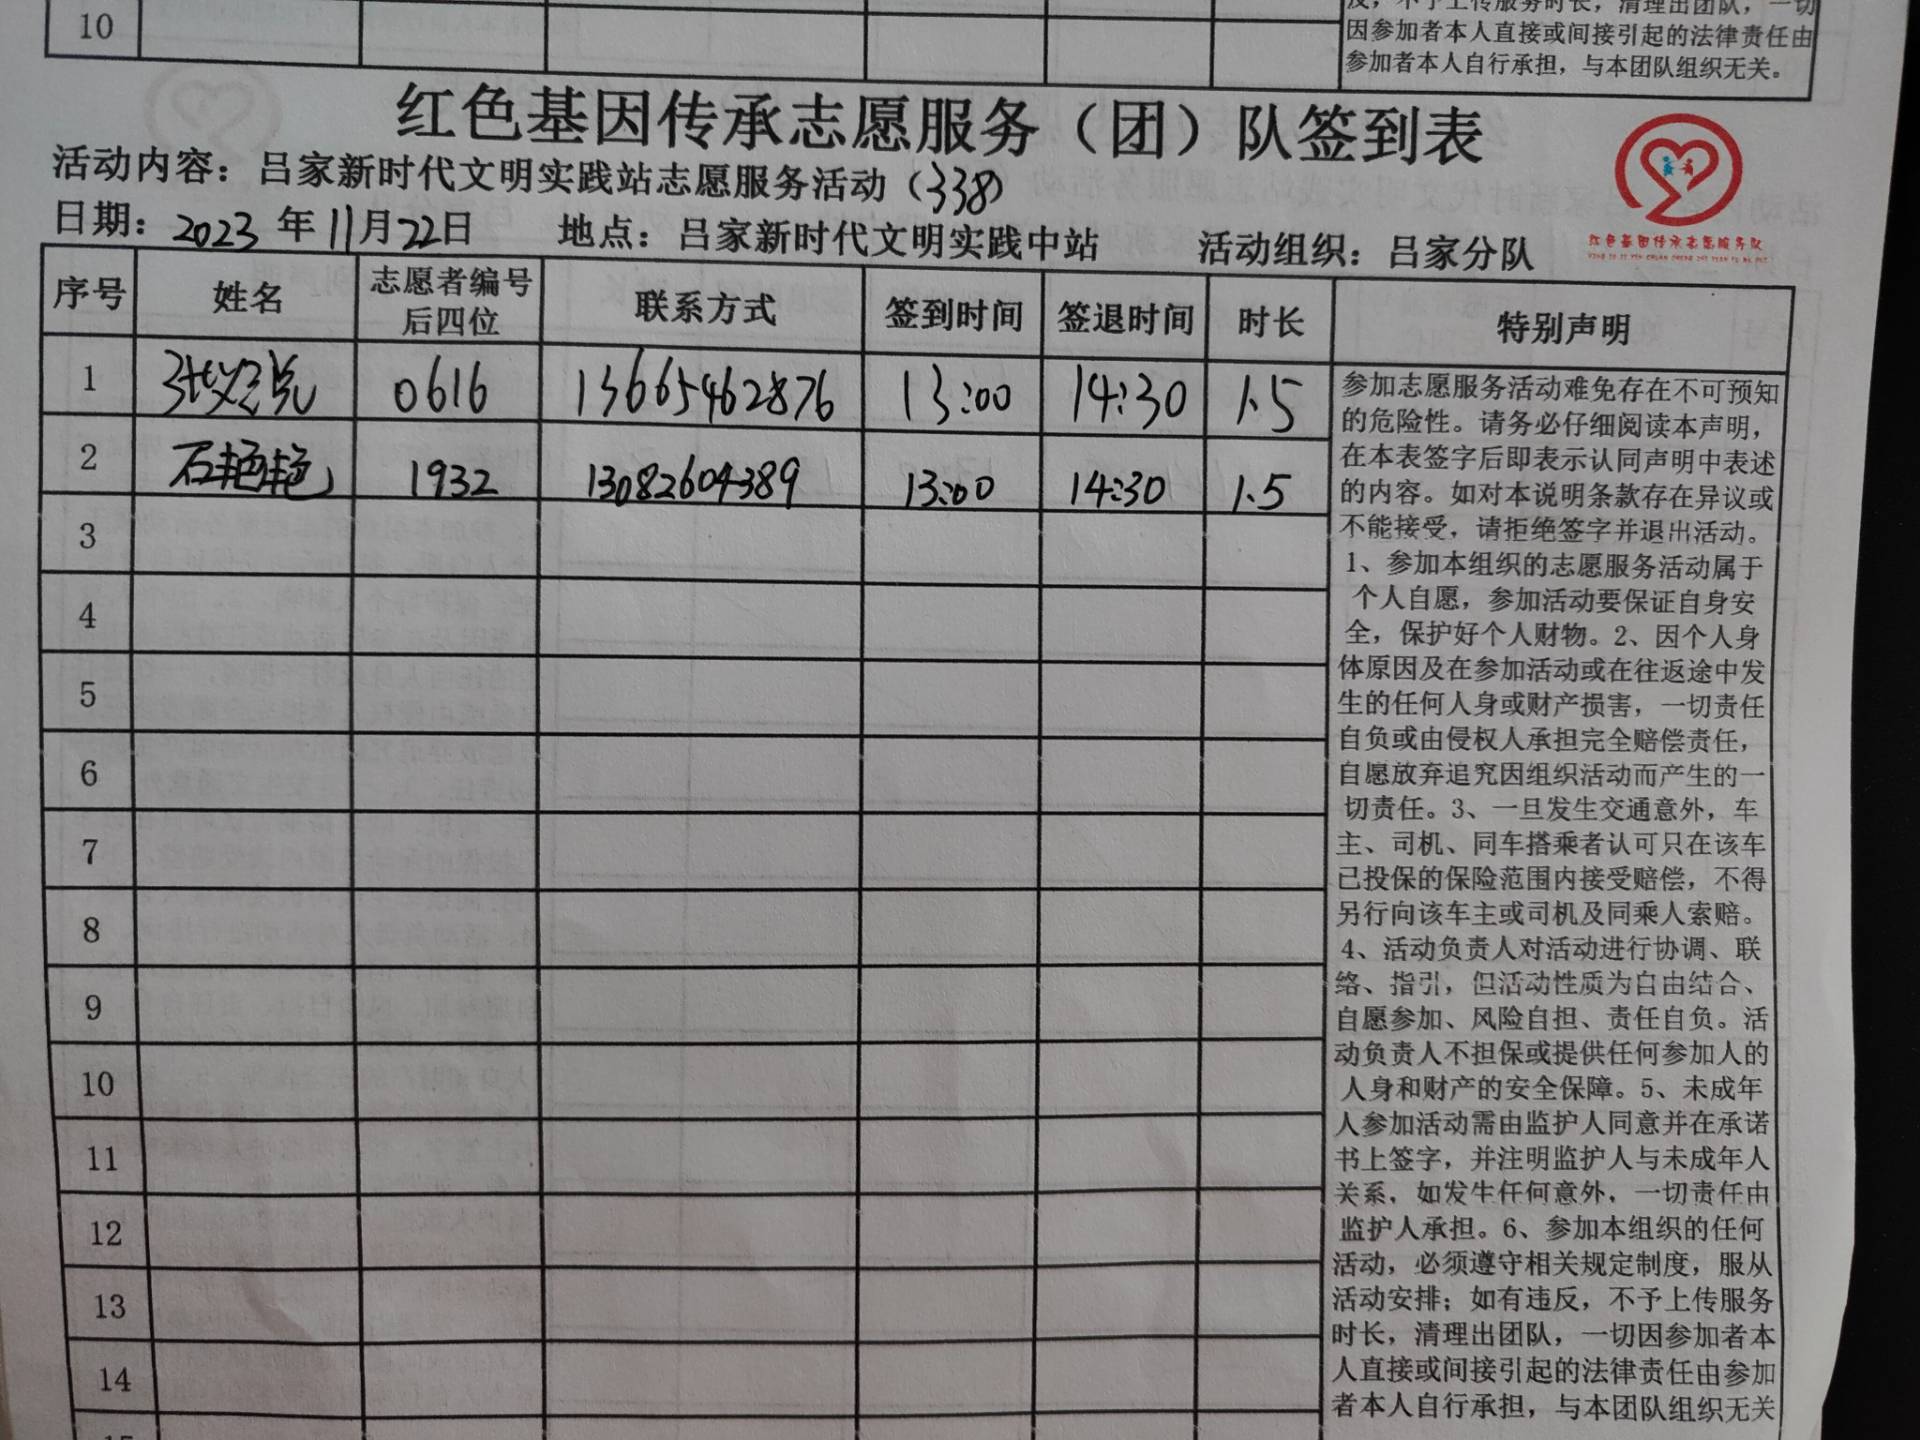 10
反，不予上传服务时长，清理出团队，一切
因参加者本人直接或间接引起的法律责任由
参加者本人自行承担，与本团队组织无关。
红色基因传承志愿服务（团）队签到表
活动内容：吕家新时代文明实践站志愿服务活动（338）
日期：2023年11月22日 地点：吕家新时代文明实践中站 活动组织：吕家分队
红色基因传承志愿服务队
序号 姓名 志愿者编号后四位 联系方式 签到时间 签退时间 时长 特别声明
1 0616 13665462876 13:00 14:30 1.5
2 石艳艳 1932 13082604389 13:00 14:30 1.5
3
4
5
6
7
8
9
10
11
12
13
14
15
参加志愿服务活动难免存在不可预知
的危险性。请务必仔细阅读本声明，
在本表签字后即表示认同声明中表述
的内容。如对本说明条款存在异议或
不能接受，请拒绝签字并退出活动。
1、参加本组织的志愿服务活动属于
个人自愿，参加活动要保证自身安
全，保护好个人财物。2、因个人身
体原因及在参加活动或在往返途中发
生的任何人身或财产损害，一切责任
自负或由侵权人承担完全赔偿责任，
自愿放弃追究因组织活动而产生的一
切责任。3、一旦发生交通意外，车
主、司机、同车搭乘者认可只在该车
已投保的保险范围内接受赔偿，不得
另行向该车主或司机及同乘人索赔。
4、活动负责人对活动进行协调、联
络、指引，但活动性质为自由结合、
自愿参加、风险自担、责任自负。活
动负责人不担保或提供任何参加人的
人身和财产的安全保障。5、未成年
人参加活动需由监护人同意并在承诺
书上签字，并注明监护人与未成年人
关系，如发生任何意外，一切责任由
监护人承担。6、参加本组织的任何
活动，必须遵守相关规定制度，服从
活动安排；如有违反，不予上传服务
时长，清理出团队，一切因参加者本
人直接或间接引起的法律责任由参加
者本人自行承担，与本团队组织无关